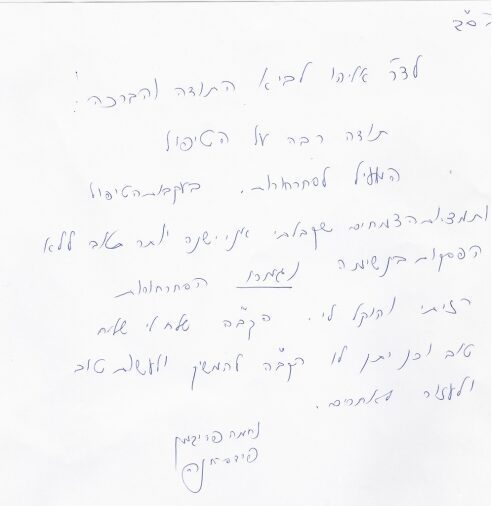 בס"ד
לדר' אליהו לביא התודה והברכה!
תודה רבה על הטיפול
המועיל לסחרחורות. בעקבות הטיפול
ותמצית הצמחים שקבלתי אני ישנה יותר טוב ללא
הפסקות בנשימה ונגמרו הסחרחורות
רזיתי והוקל לי. הקב"ה שלח לי שליח
טוב וכן יתן לו הקב"ה להמשיך ולעשות טוב
ולעזור לאחרים.
נחמה פרידמן
פרדס חנה